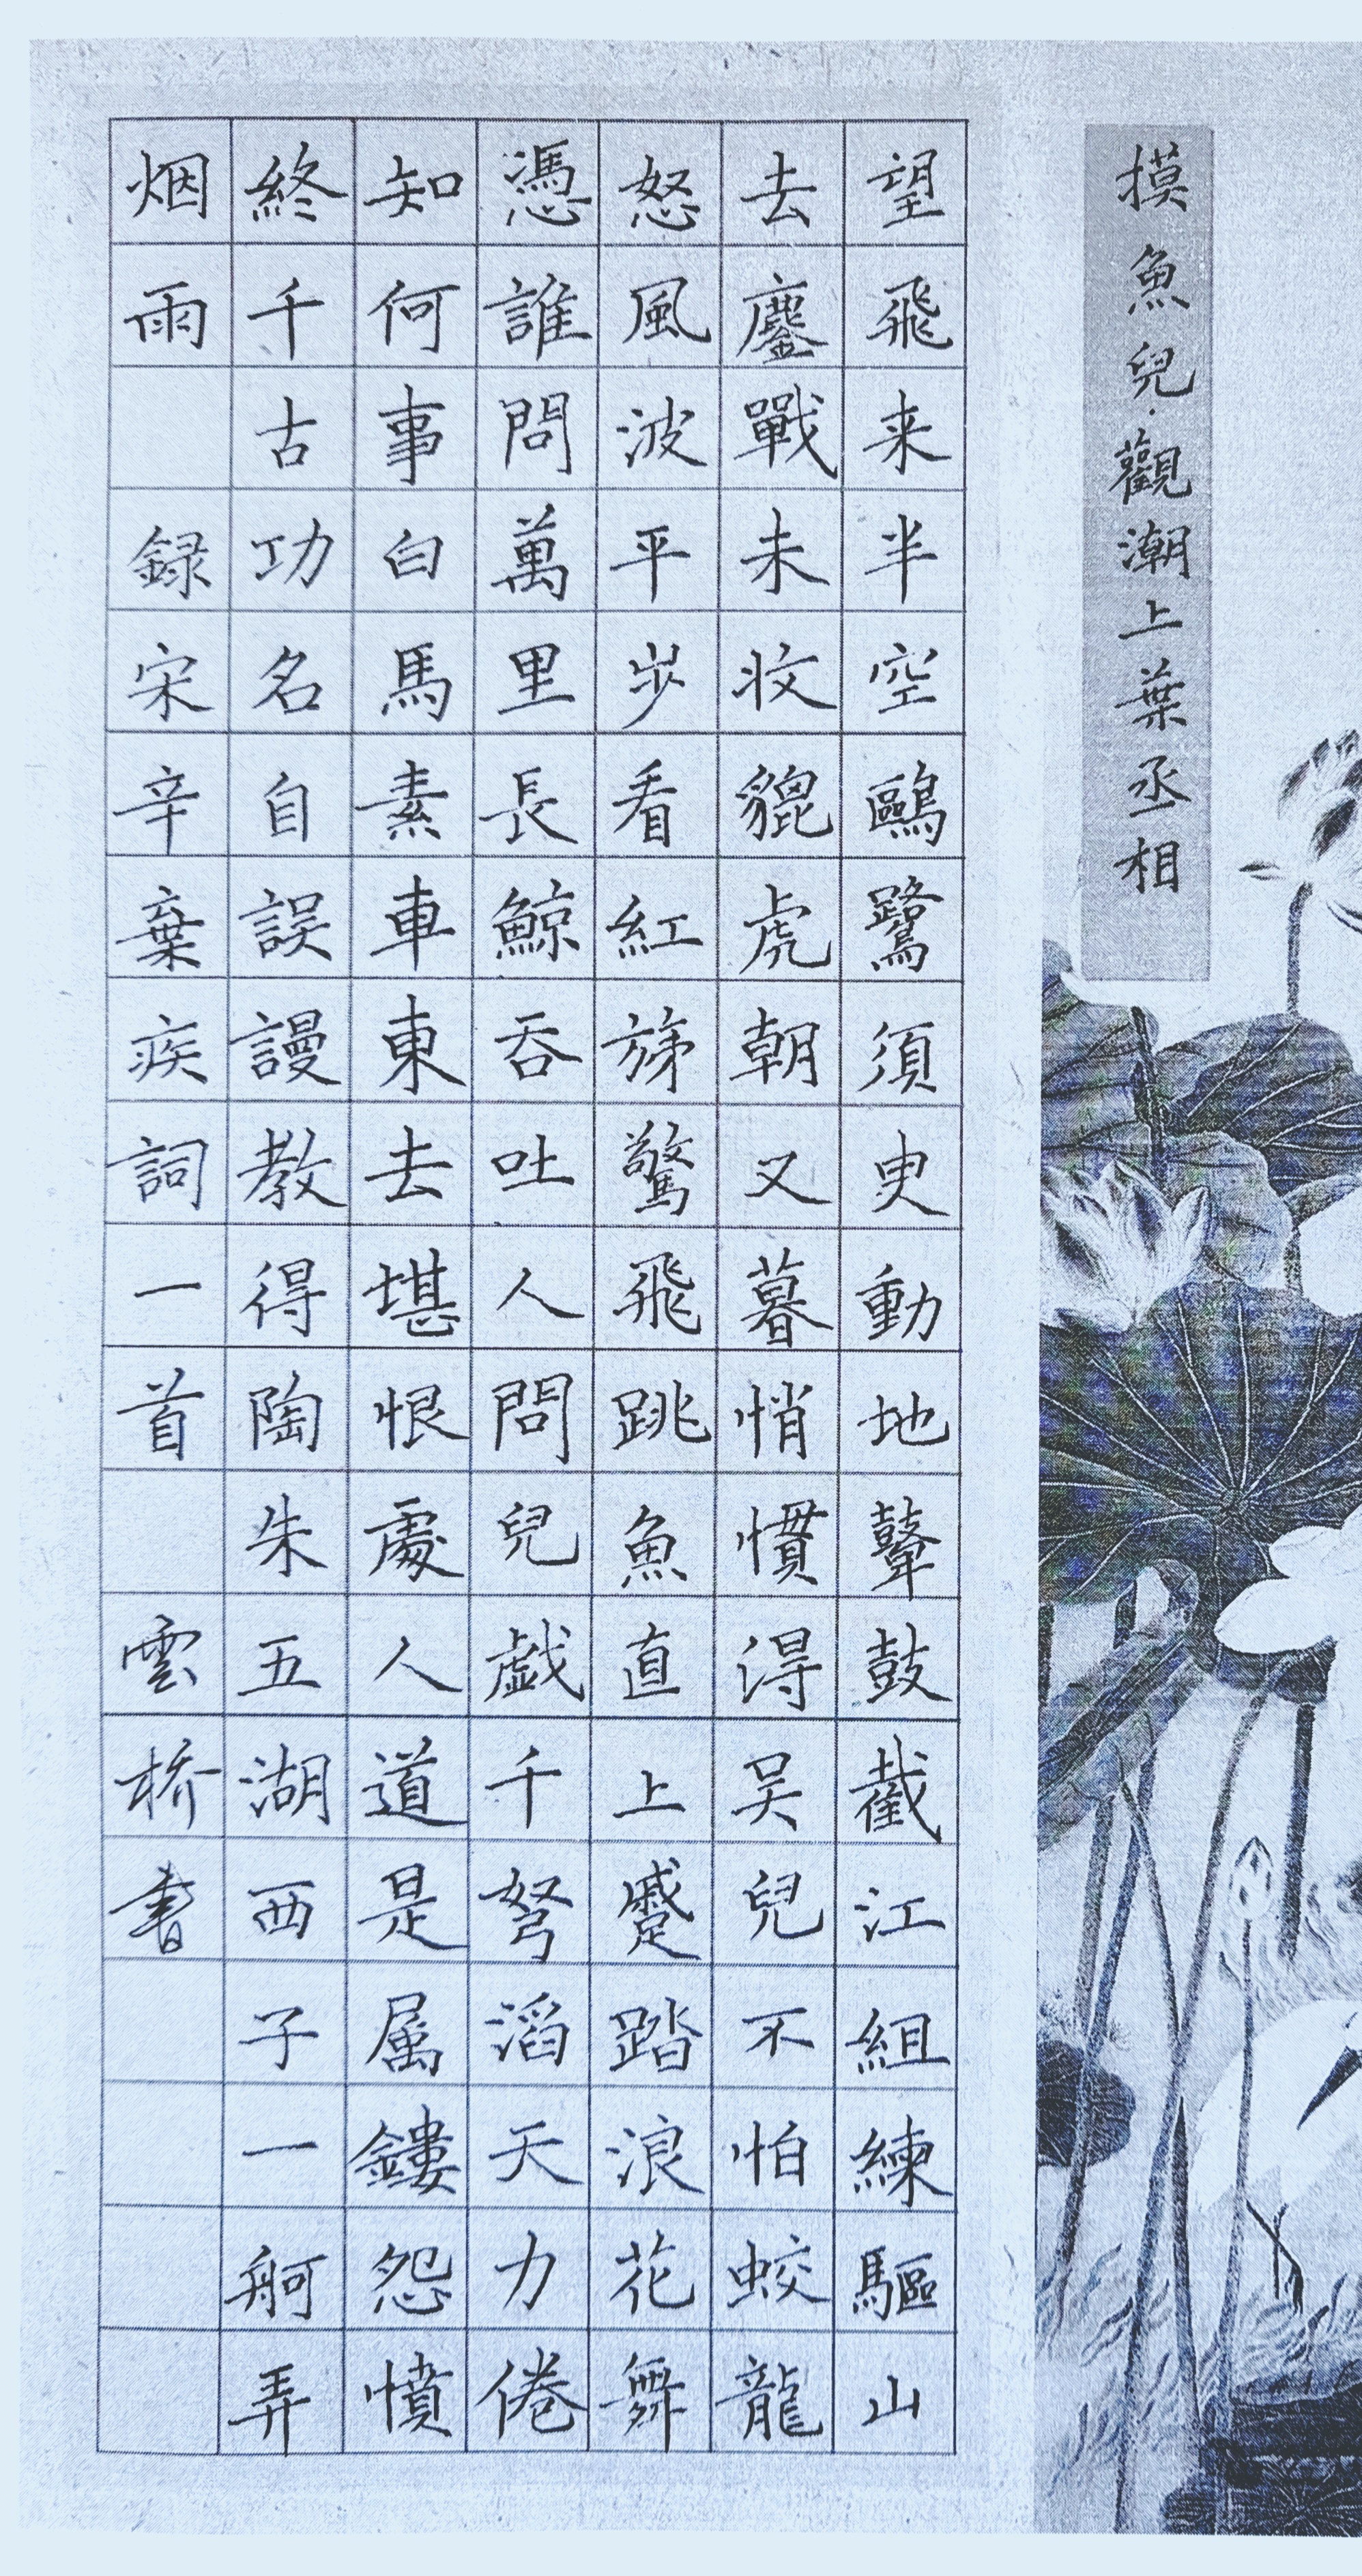 摸魚兒·觀潮上葉丞相
望飛来半空鷗鷺須臾動地鼙鼓截江組練驅山
去鏖戰未收貔虎朝又暮悄慣得吴兒不怕蛟龍
怒風波平步看紅旆驚飛跳魚直上蹙踏浪花舞
憑誰問萬里長鯨吞吐人間兒戲千弩滔天力倦
知何事白馬素車東去堪恨處人道是属鏤怨憤
終千古功名自誤謾教得陶朱五湖西子一舸弄
烟雨 録宋辛棄疾詞一首 雲橋書